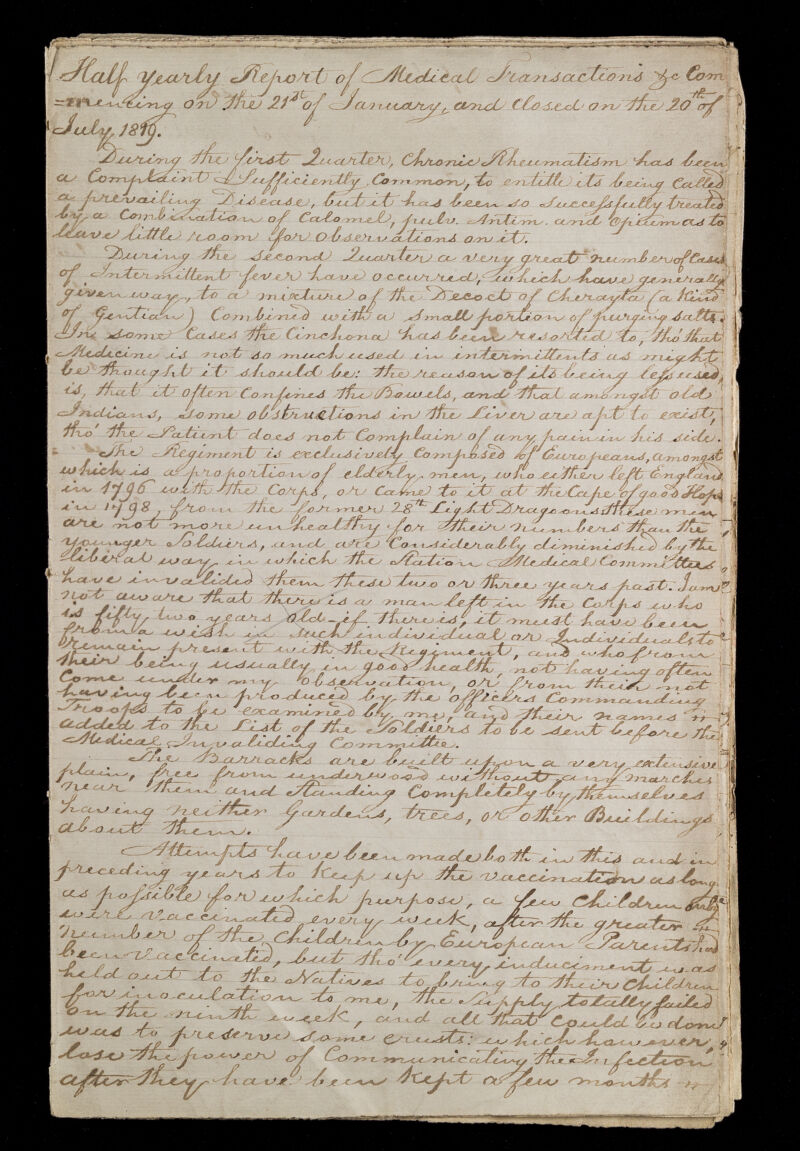 Half yearly Report of Medical Transactions &c Com
=mencing on the 21st of January, and Closed on the 20th of
July, 1819.
During the first Quarter, Chronic Rheumatism has been
a Complaint Sufficiently Common, to entitle its being Called
a prevailing Disease, but it has been so successfully treated
by a Combination of Calomel, pulv. Antim. and Opium as to
leave little room for observations on it.
During the second Quarter a very great number of Cases
of Intermittent fever have occurred, which have generally
given way, to a mixture of the Decoct of Cherayta (a Kind
of Gentian) Combined with a small portion of purging salts.
In some Cases the Cinchona has been resorted to, tho' that
Medicine is not so much used in intermittents as might
be thought it should be: the reason of its being less used,
is, that it often Confines the Bowels, and that amongst old
Indians, some obstructions in the Liver are apt to exist,
tho' the Patient does not Complain of any pain in his side.
The Regiment is exclusively Composed of Europeans, amongst
which is a proportion of elderly men, who either left England
in 1796 with the Corps, or Came to it at the Cape of good Hope
in 1798, from the former 28th Light Dragoons these men
are not more unhealthy for their numbers than the
younger Soldiers, and are Considerably diminished by the
liberal way in which the Station Medical Committees
have invalided them these two or three years past. I am
not aware that there is a man left in the Corps who
is fifty two years old - if there is, it must have been
from a wish in such individual or Individuals to
remain present with the Regiment, and who from
their being usually in good health, not having often
Come under my observation, or from their not
having been produced by the officers Commanding
Troops to be examined by me, and their names
added to the List of the Soldiers to be sent before the
Medical Invaliding Committee.
The Barracks are built upon a very extensive
plain, free from underwood without any marches
near them and standing Completely by themselves
having neither Gardens, trees, or other Buildings
about them.
Attempts have been made both in this and in
preceding years to Keep up the vaccination as long
as possible for which purpose, a few Children only
were vaccinated every week, after the greater
number of the Children by European Parents had
been vaccinated, but tho' every inducement was
held out to the Natives to bring to their Children
for inoculation to me, the supply totally failed
on the ninth week, and all that Could be done
was to preserve some crusts: which however,
lose the power of Communicating the Infection
after they have been Kept a few months